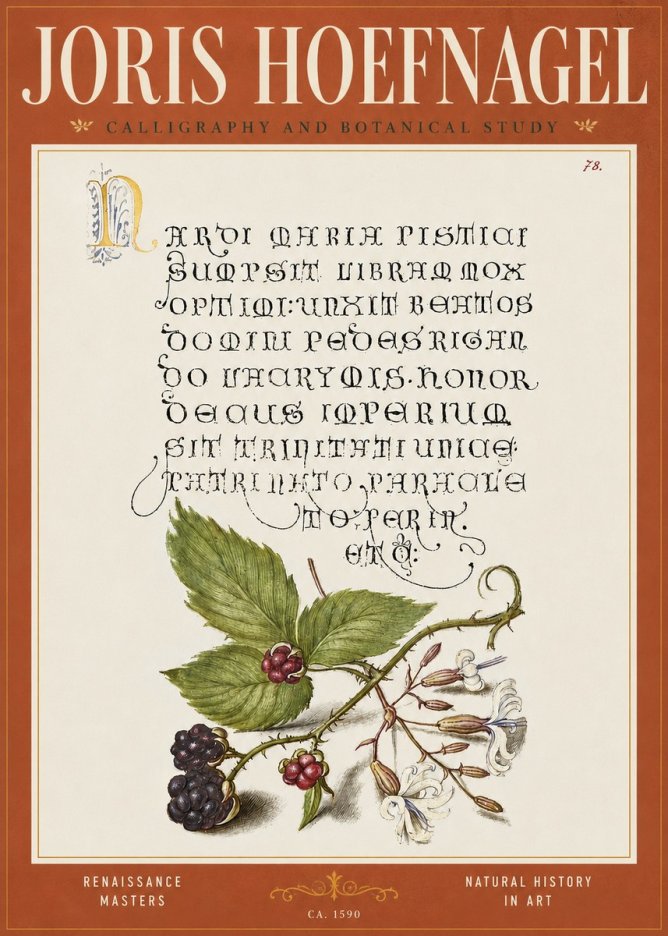 JORIS HOEFNAGEL
CALLIGRAPHY AND BOTANICAL STUDY
78.
NARDI MARIA PISTICI
SUMPSIT LIBRAM MOX
OPTIMI: UNXIT BEATOS
DOMINI PEDES RIGAN
DO LACRYMIS. HONOR
DECUS IMPERIUM
SIT TRINITATI UNICE
PATRI NATO PARACLE
TO: PER IN.
ET Q:
RENAISSANCE
MASTERS
CA. 1590
NATURAL HISTORY
IN ART